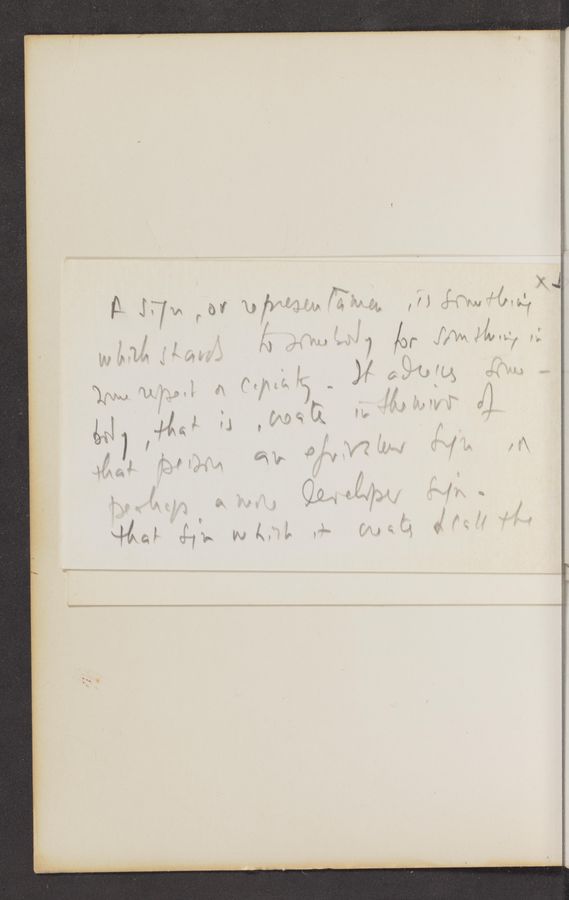 X
A sign, or representamen, is something
which stands to somebody for something in
some respect or capacity - It adresses some -
body, that is, create in the mind of
that person an equivalent sign, or
perhaps a more developed sign -
that sign which it creates I call the